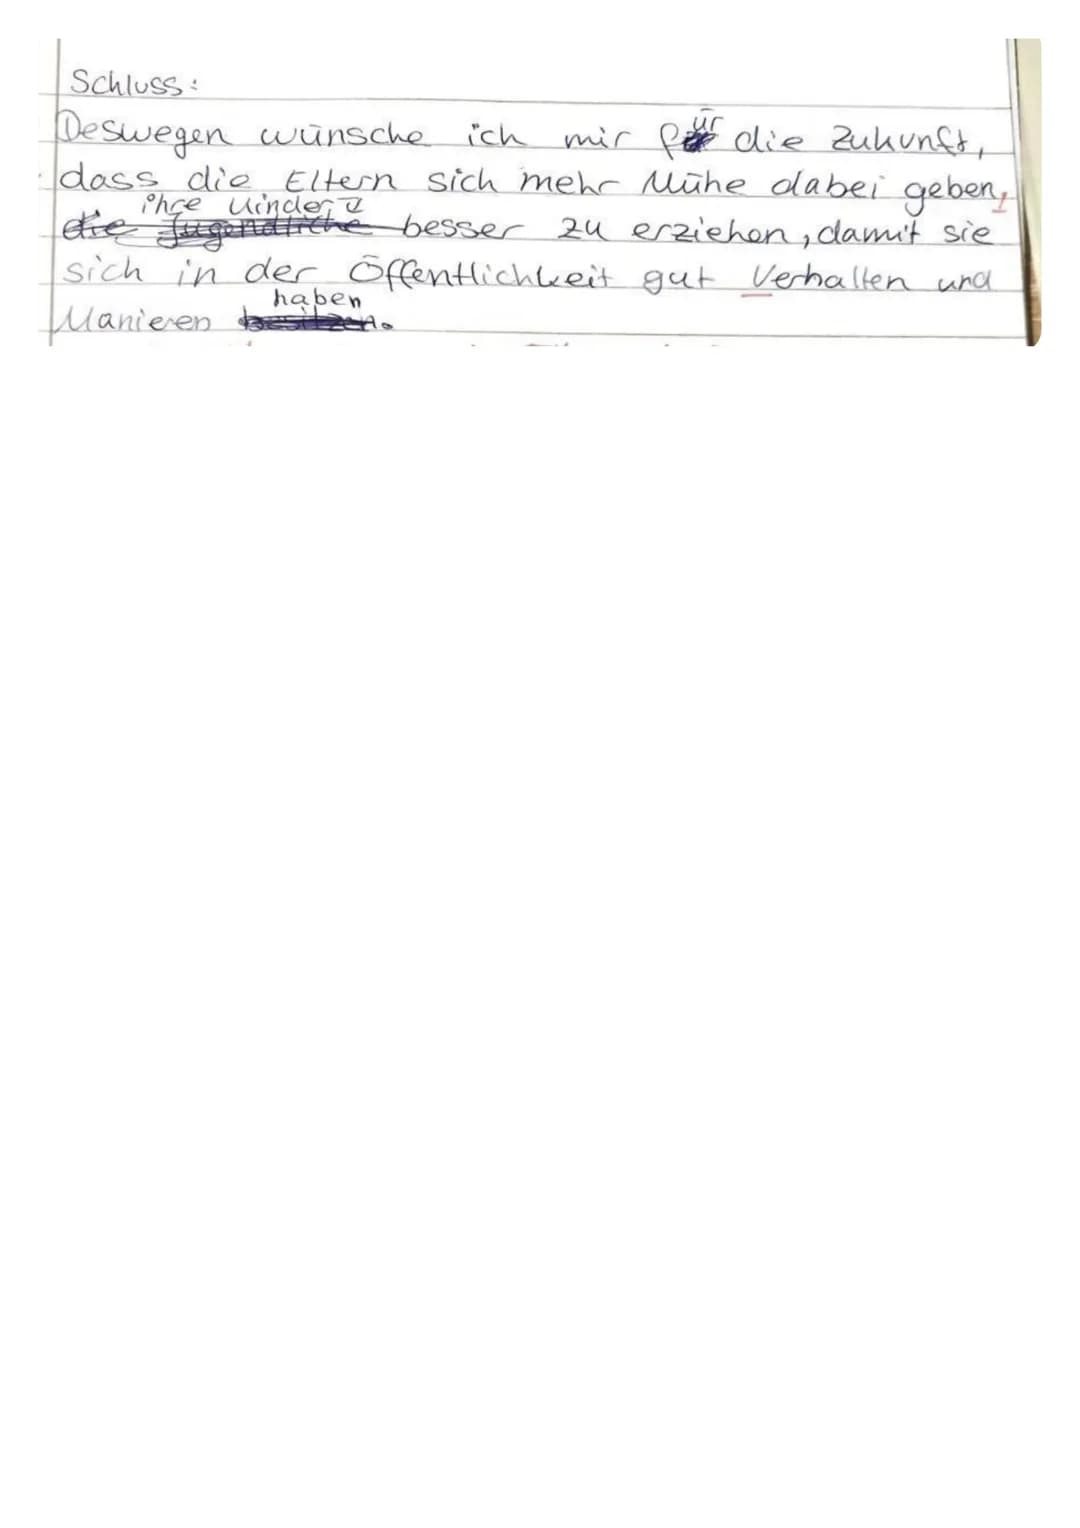 Schluss:
Deswegen wünsche ich mir für die Zukunft,
dass die Eltern sich mehr Mühe dabei geben,
ihre Kinder
die Jugendliche besser zu erziehen, damit sie
sich in der Öffentlichkeit gut Verhalten und
haben
Manieren besitzen.